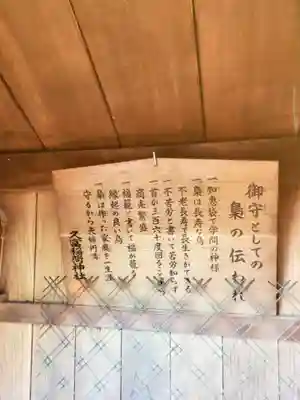 御守としての
梟の伝われ
一知恵袋で学問の神様
一梟は長寿な鳥
不老長寿で長生きができる
一不苦労と書いて苦労知らず
一首が三百六十度回る
商売繁盛
一福籠と書いて福が籠る
縁起の良い鳥
一梟は作った家庭を一生涯
守るから夫婦円満
神社